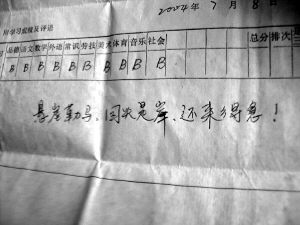 2004年7月8
附:学习成绩及评语
品德 语文 数学 外语 常识 劳技 美术 体育 音乐 社会 总分 排次
B B B B B B B B B B
悬崖勒马、回头是岸、还来得急!